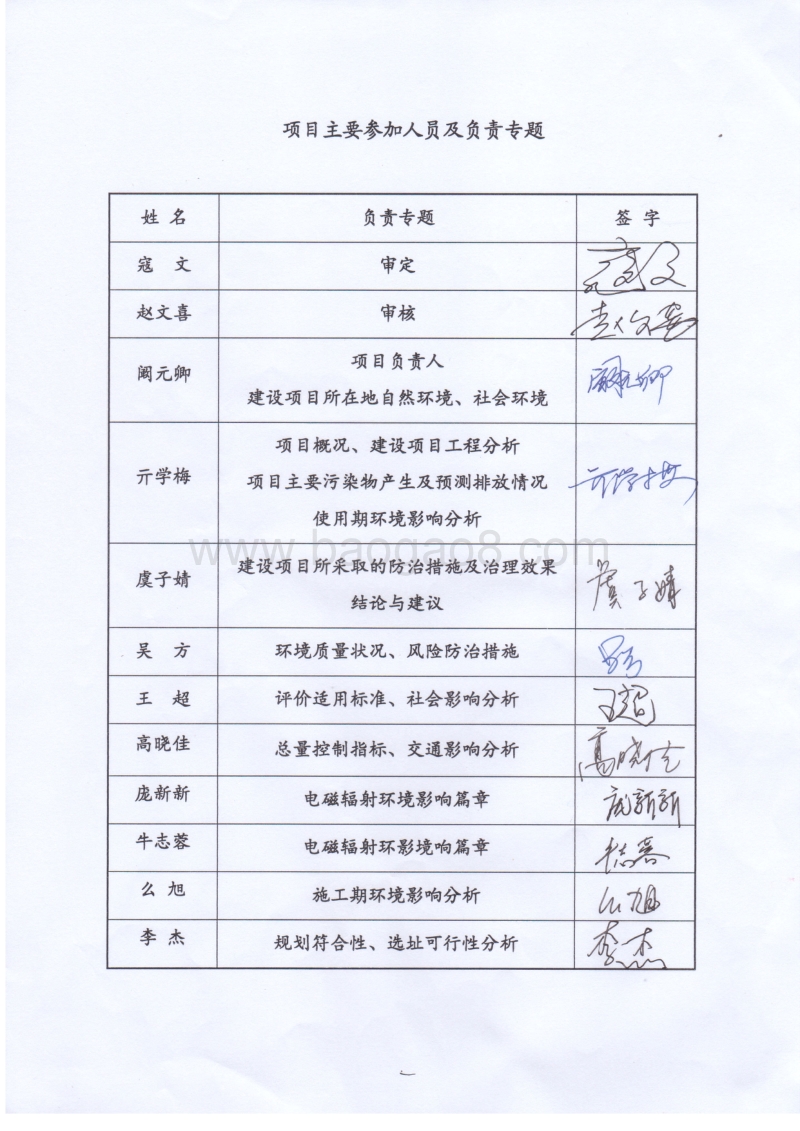 项目主要参加人员及负责专题
姓 名 负责专题 签 字
寇 文 审定 寇文
赵文喜 审核 赵文喜
阚元卿 项目负责人 阚元卿
建设项目所在地自然环境、社会环境
项目概况、建设项目工程分析
亓学梅 项目主要污染物产生及预测排放情况 亓学梅
使用期环境影响分析
www.baogao8.com
虞子婧 建设项目所采取的防治措施及治理效果 虞子婧
结论与建议
吴 方 环境质量状况、风险防治措施 吴方
王 超 评价适用标准、社会影响分析 王超
高晓佳 总量控制指标、交通影响分析 高晓佳
庞新新 电磁辐射环境影响篇章 庞新新
牛志蓉 电磁辐射环影境响篇章
么 旭 施工期环境影响分析 么旭
李 杰 规划符合性、选址可行性分析 李杰